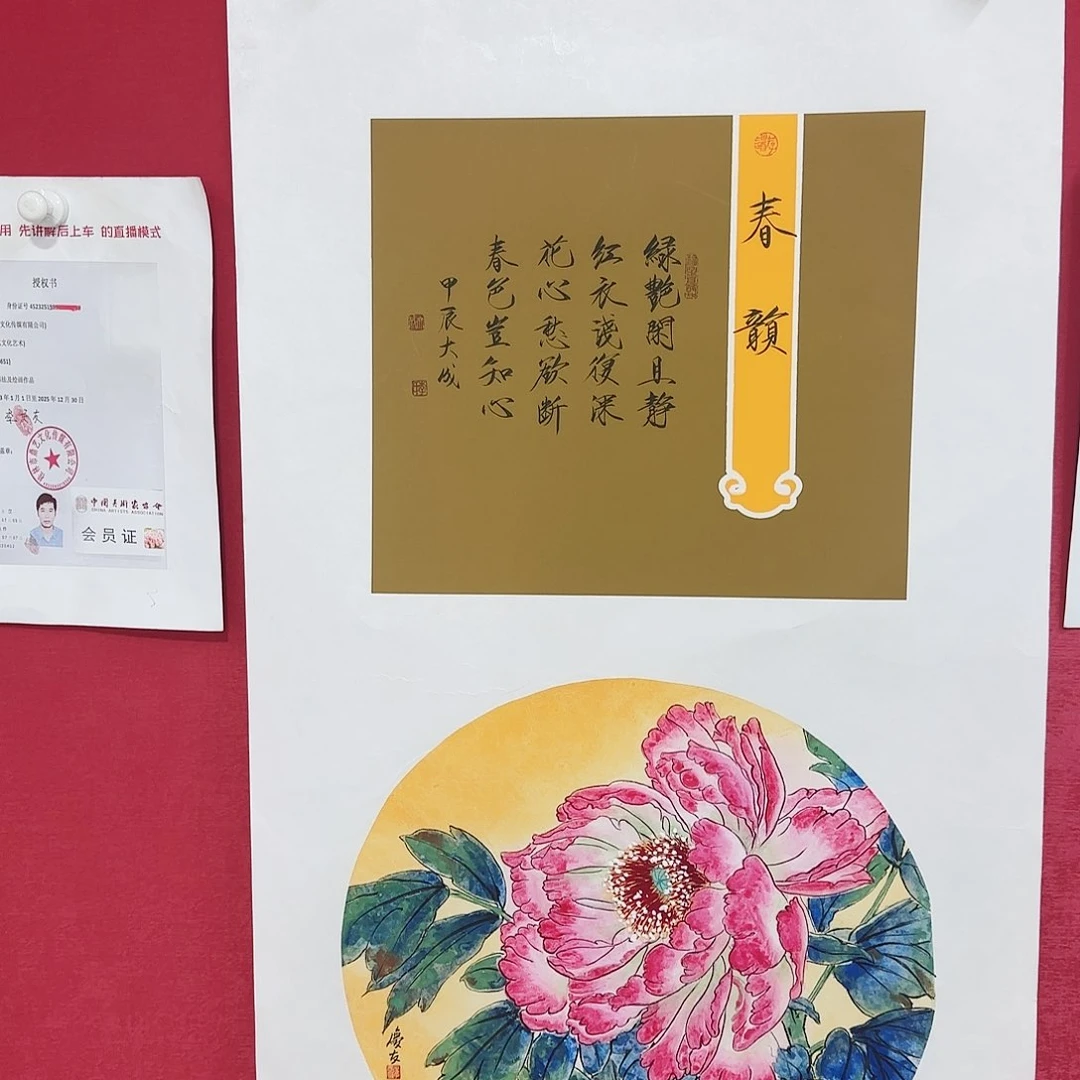 用 先讲解后上车 的直播模式
授权书
身份证号 4523251
文化传媒有限公司)
文化艺术)
651)
年1月1日至2025年12月30日
中国美术家协会
CHINA ARTISTS ASSOCIATION
会员证
春韻
緑艷閑且静
红衣浅復深
花心愁欲断
春色豈知心
甲辰大成
慶友